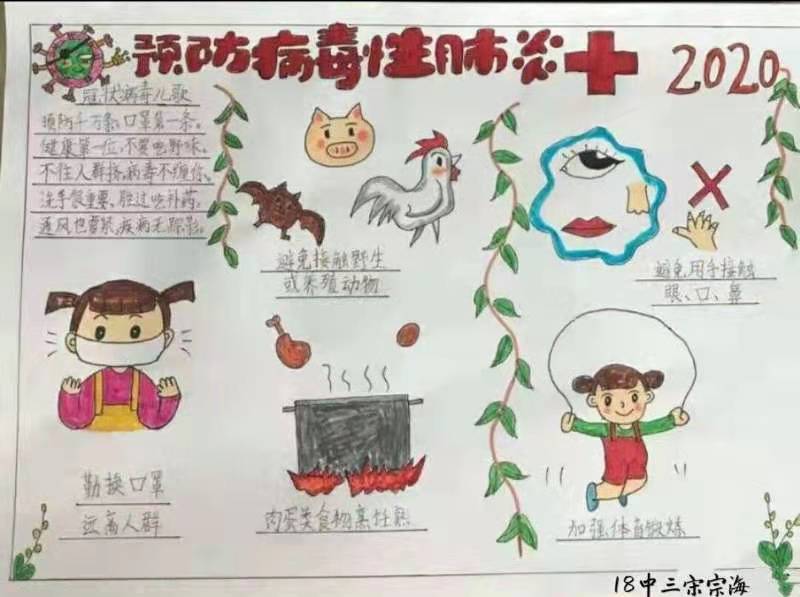 预防病毒性肺炎
2020
冠状病毒儿歌
预防千万条,口罩第一条。
健康第一位,不要吃野味。
不往人群挤,病毒不缠你。
洗手很重要,胜过吃补药。
通风也要紧,疾病无踪影。
避免接触野生
或养殖动物
避免用手接触
眼、口、鼻
勤换口罩
远离人群
肉蛋类食物烹饪熟
加强体育锻炼
18中三宋宗海